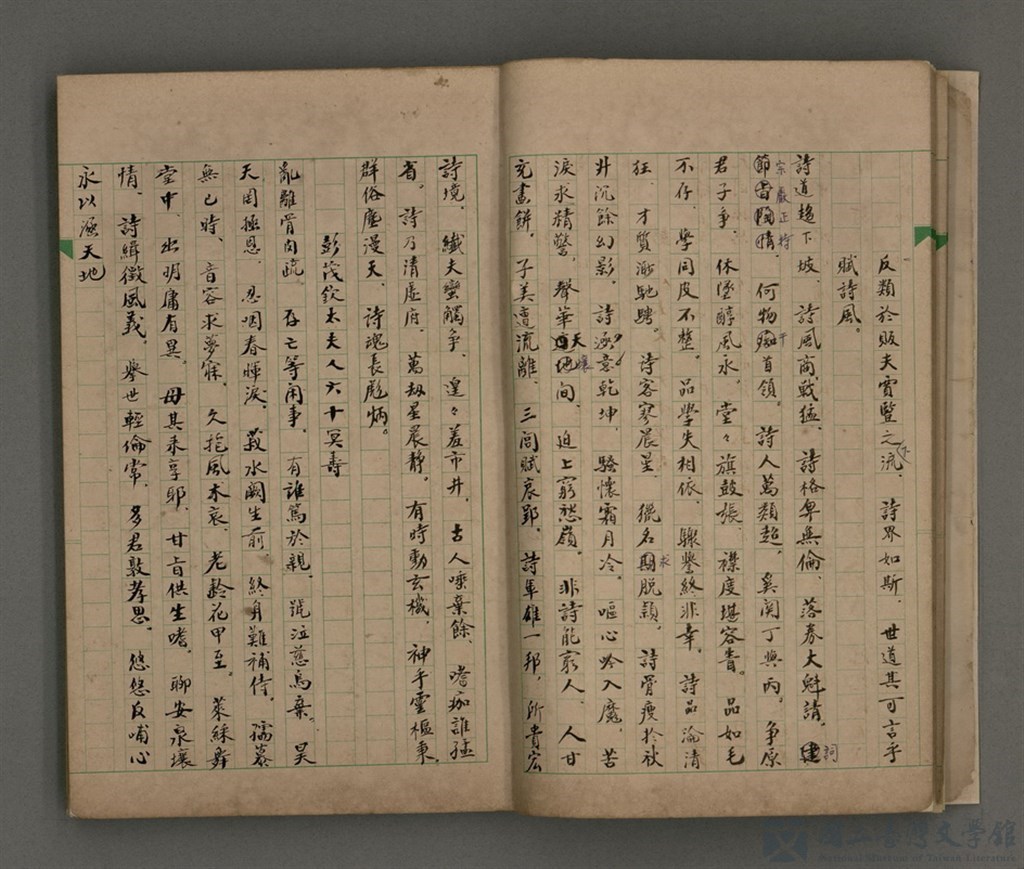 反類於販夫賣豎之流、詩界如斯、世道其可言乎
賦詩風。
詩道趨下坡、詩風商戰猛、詩格卑無倫、落卷大魁請、詞
宗嚴正持
情、何物干首領。詩人萬類超、奚関丁與丙。争原
君子爭、休墜醇風永、堂々旗鼓張、襟度堪容眚。品如毛
不仔、學同皮不整。品學失相依、驟譽終非幸。詩品淪清
狂、才質漸馳騁。詩客寥晨星、獵名求脫穎。詩骨瘦於秋
井沉餘幻影。詩意乾坤、騷懷霜月冷。嘔心吟入魔、苦
淚求精警、聲華天壤間、迫上窮愁嶺。非詩能窮人、人甘
充畫餅。子美遭流離、三閭賦哀郢、詩軍雄一邦、所貴宏
詩境。纖夫蠻觸爭、遑々羞市井、古人唾棄餘、嗜痂誰猛
省。詩乃清虛府、萬劫星晨靜。有時動玄機、神手靈樞秉
群俗塵漫天、詩魂長彪炳。
彭茂欽太夫人六十冥壽
亂離骨肉疏、存亡等閑事、有誰篤於親、號泣慈烏棄。昊
天罔極恩、忍咽春暉淚、菽水闕生前、終身難補侍。孺慕
無已時、音容求夢寐、久抱風木哀、老齡花甲至。萊綵舞
堂中、出明庸有異、母其來享耶、甘旨供生嗜。聊安泉壤
情、詩緝徵風義、舉世輕倫常、多君敦孝思。悠悠反哺心
永以極天地
National Museum of Taiwan Literature